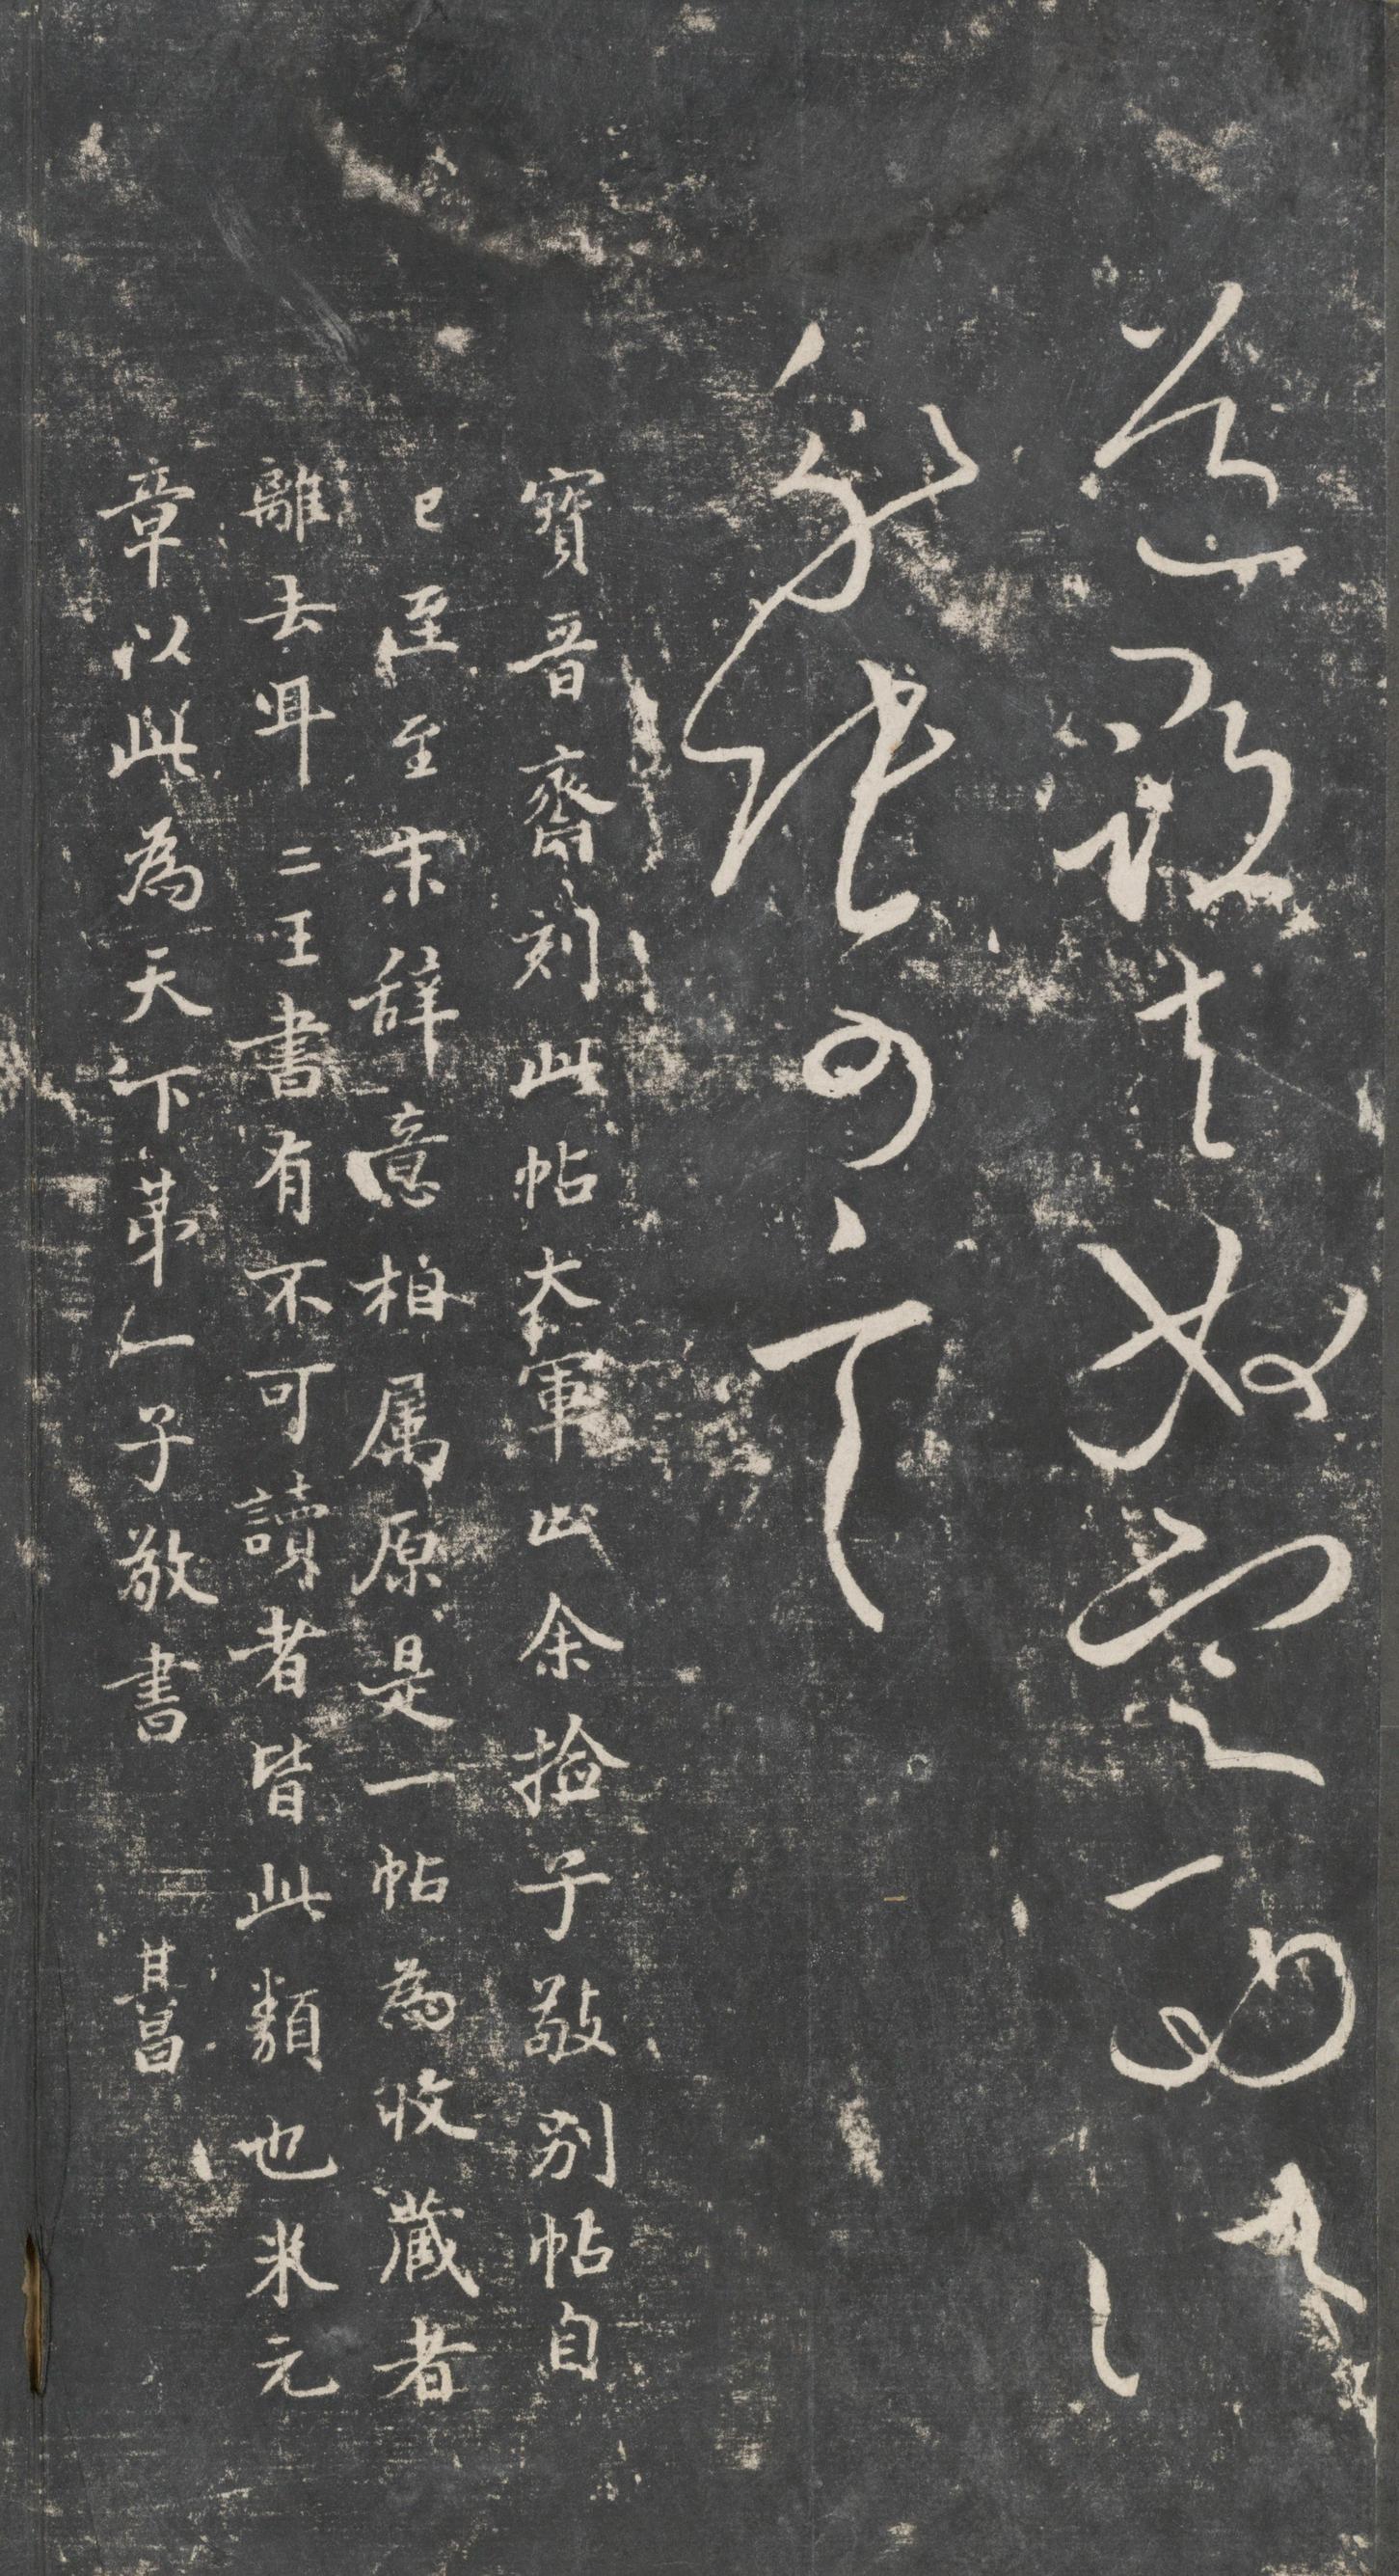 可言
寶晉齋刻此帖大軍止余撿子敬別帖自
已至至末辭意相属原是一帖為收藏者
離去耳二王書有不可讀者皆此類也米元
章以此為天下第一子敬書 其昌